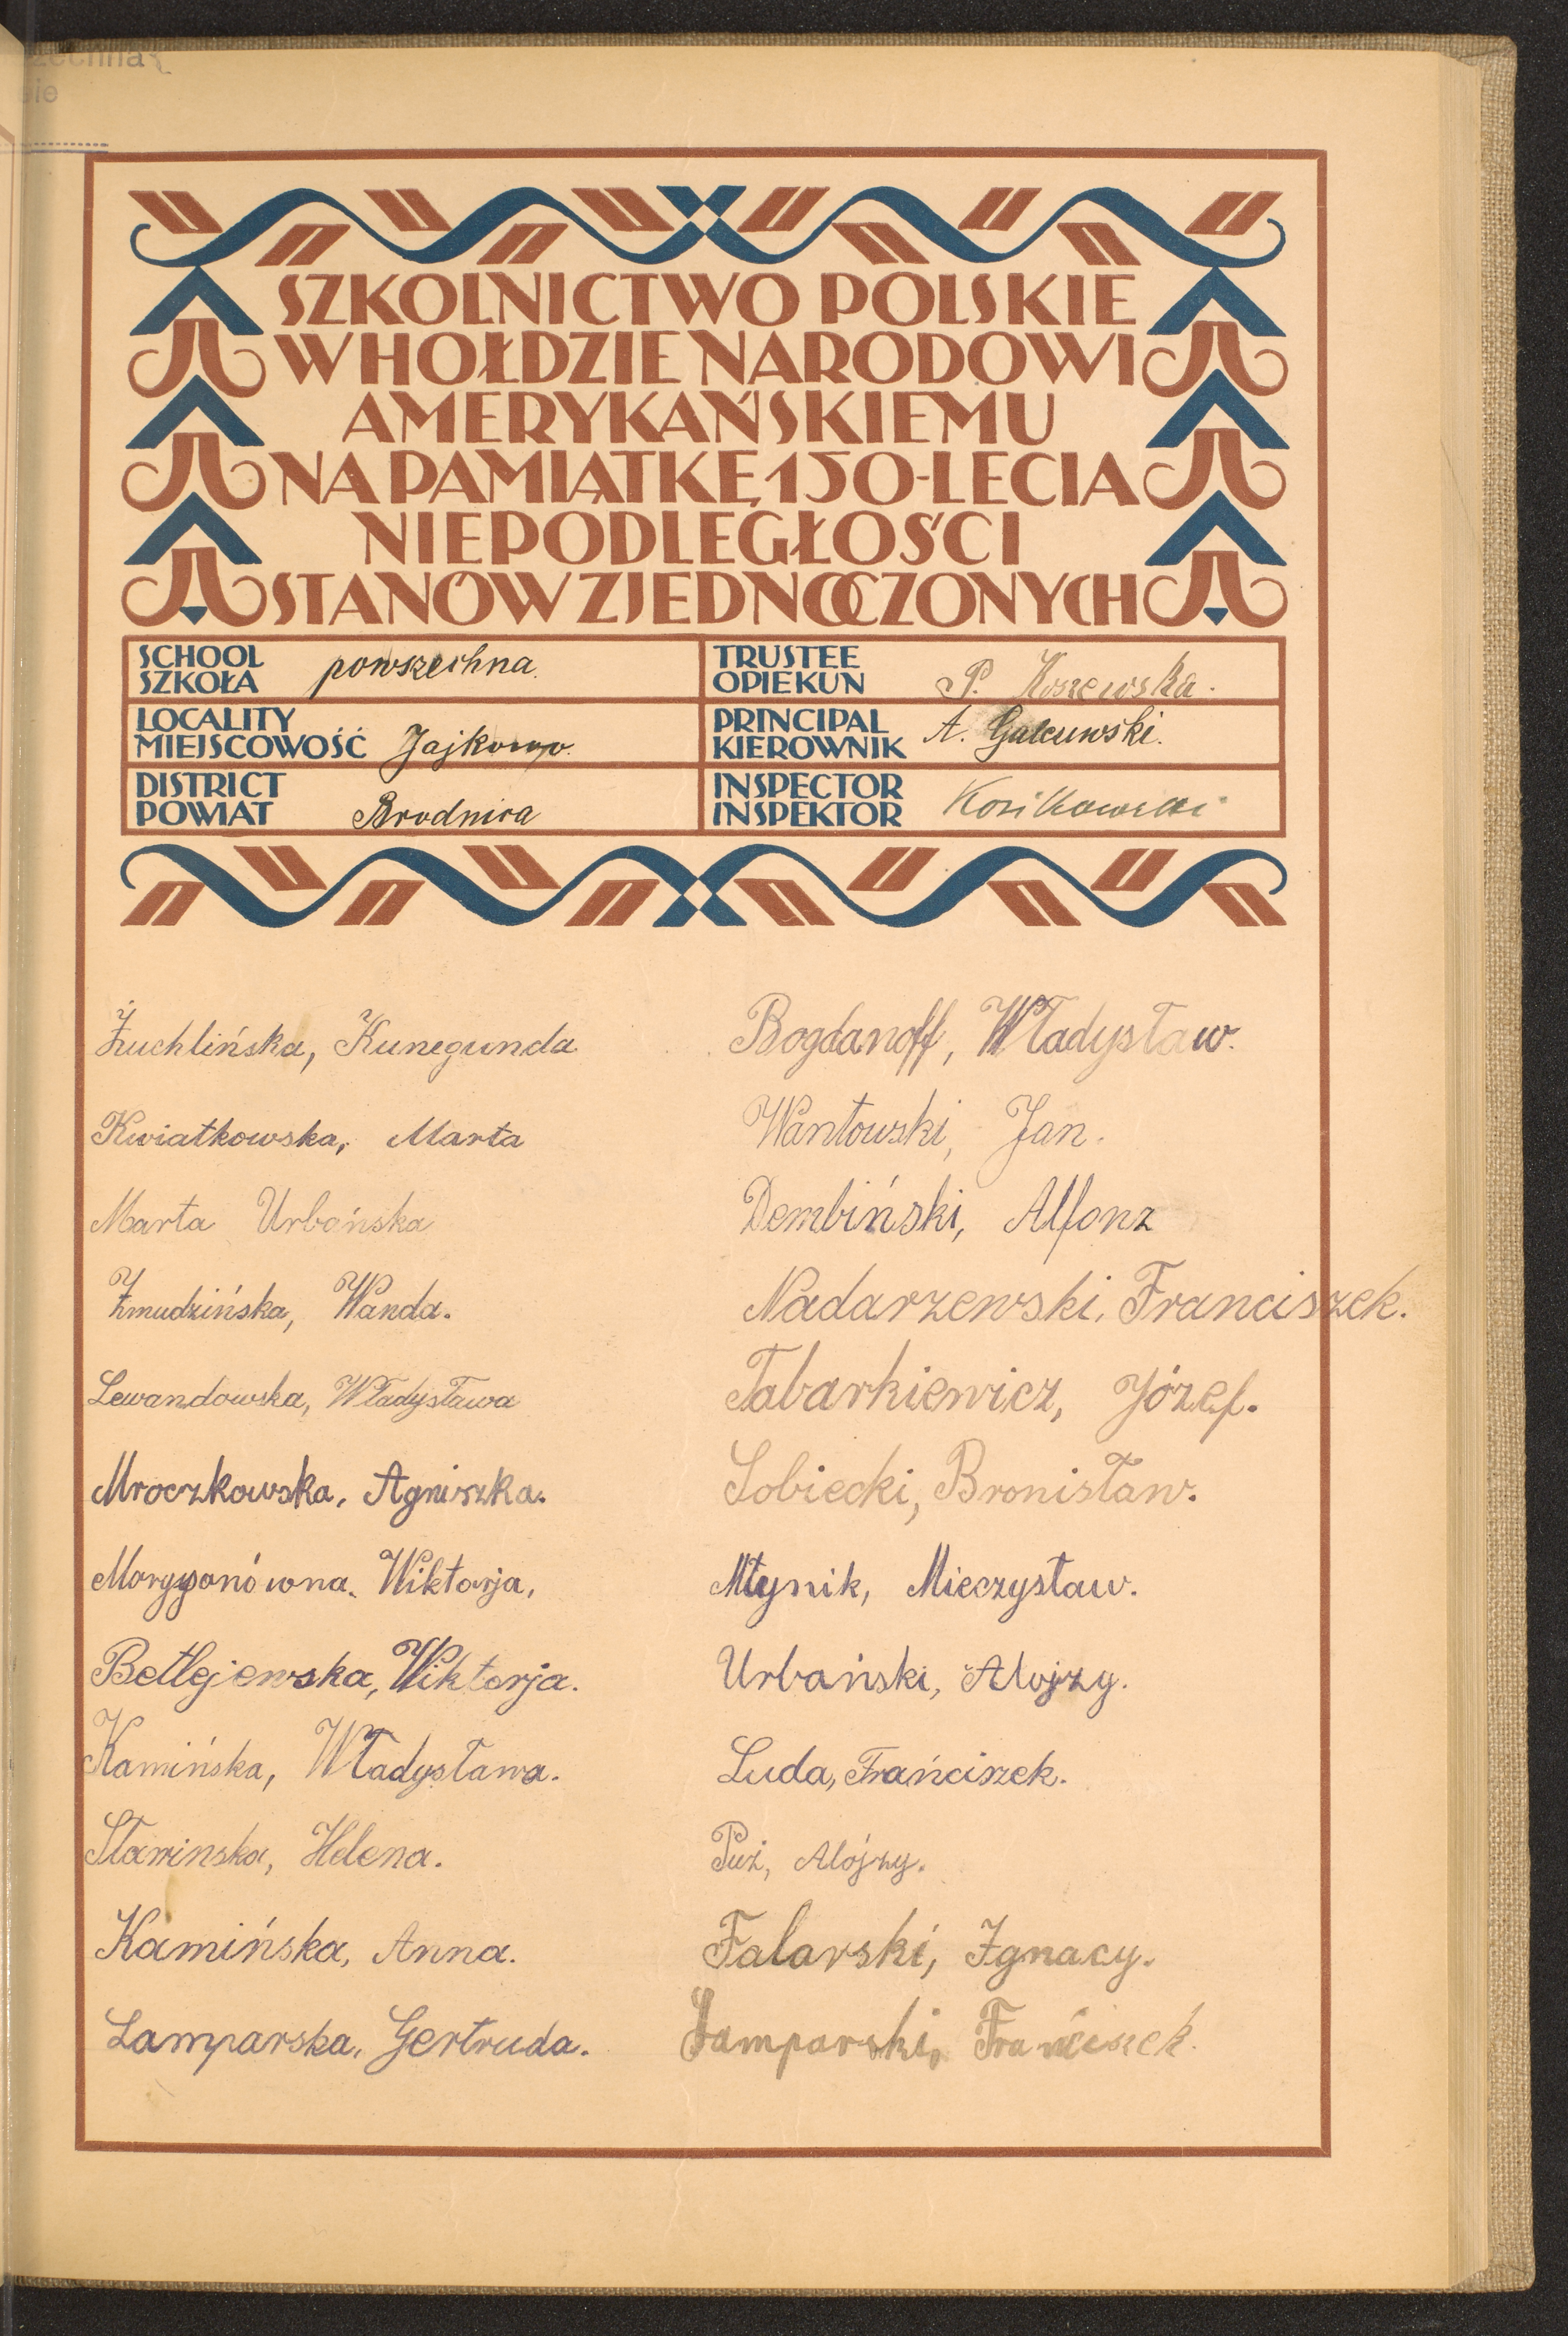 zechna
SZKOLNICTWO POLSKIE
W HOŁDZIE NARODOWI
AMERYKAŃSKIEMU
NA PAMIĄTKĘ 150-LECIA
NIEPODLEGŁOŚCI
STANÓW ZJEDNOCZONYCH
SCHOOL
SZKOŁA
powszechna.
TRUSTEE
OPIEKUN
P. Koszewska.
LOCALITY
MIEJSCOWOŚĆ
Jajkowo.
PRINCIPAL
KIEROWNIK
A.
DISTRICT
POWIAT
Brodnica
INSPECTOR
INSPEKTOR
Żuchlińska, Kunegunda
Kwiatkowska, Marta
Marta Urbańska
Żmudzińska, Wanda.
Lewandowska, Władysława
Mroczkowska, Agniszka.
Wiktorja,
Betlejewska, Wiktorja.
Kamińska, Władysława.
Sławinska, Helena.
Kamińska, Anna.
Lamparska, Gertruda.
Bogdanoff, Władysław.
Wantowski, Jan.
Dembiński, Alfonz
Nadarzewski, Franciszek.
Tabarkiewicz, Józef.
Sobiecki, Bronisław.
Młynik, Mieczysław.
Urbański, Alojzy.
Luda, Frańciszek.
Puż, Alójzy.
Falarski, Ignacy.
Lamparski, Franciszek.